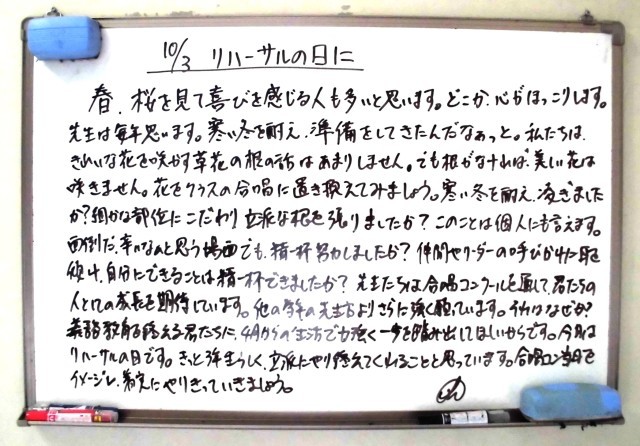 10/3 リハーサルの日に
春、桜を見て喜びを感じる人も多いと思います。どこか、心がほっこりします。
先生は毎年思います。寒い冬を耐え、準備をしてきたんだなぁっと。私たちは、
きれいな花を咲かす草花の根の話はあまりしません。でも根がなければ、美しい花は
咲きません。花をクラスの合唱に置き換えてみましょう。寒い冬を耐え、凌ぎました
か？細かな部位にこだわり立派な根を張りましたか？このことは個人にも言えます。
面倒だ、辛いなぁと思う場面でも、精一杯努力しましたか？仲間やリーダーの呼びかけに耳を
傾け、自分にできることは精一杯できましたか？先生たちは合唱コンクールを通して、君たちの
人としての成長を期待しています。他の学年の先生方よりさらに強く願っています。それはなぜか？
義務教育を終える君たちに、4月からの生活でも強く一歩を踏み出してほしいからです。今日は
リハーサルの日です。きっと3年生らしく、立派にやり終えてくれることと思っています。合唱コン当日を
イメージし、教えにやりきっていきましょう。